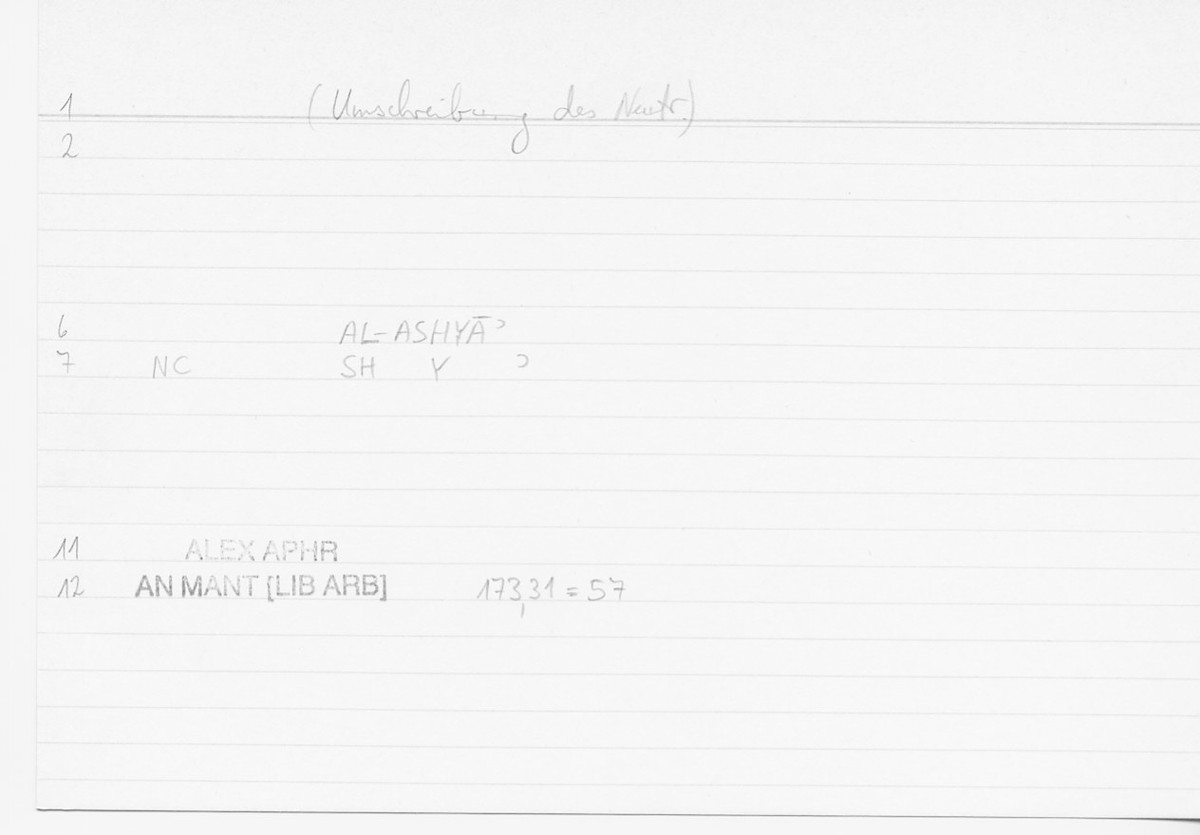 1 (Umschreibung des Neutr.)
2
6 AL-ASHYĀʾ
7 NC SH Y ʾ
11 ALEX APHR
12 AN MANT [LIB ARB] 173,31 = 57